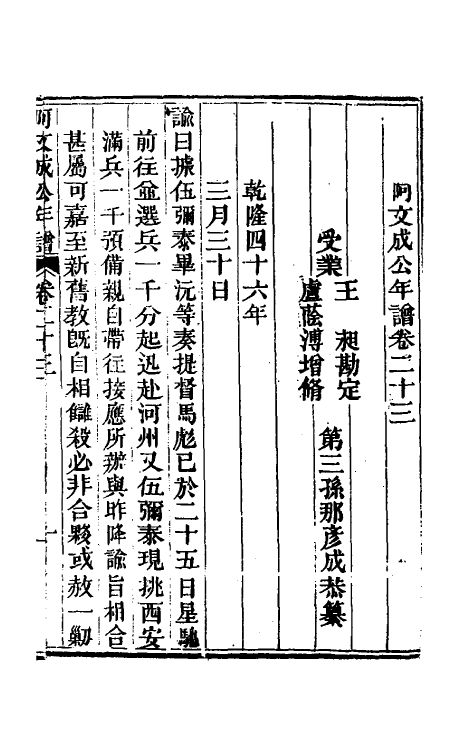 阿文成公年譜卷二十三
第三孫那彥成恭纂
受業
王　昶勘定
盧蔭溥增脩
乾隆四十六年
三月三十日
諭曰據伍彌泰畢沅等奏提督馬彪已於二十五日星馳
前往並選兵一千分起迅赴河州又伍彌泰現挑西安
滿兵一千預備親自帶往接應所辦與昨降諭旨相合
甚屬可嘉至新舊教旣自相讎殺必非合夥或赦一勦
阿文成公年譜　卷二十三　一